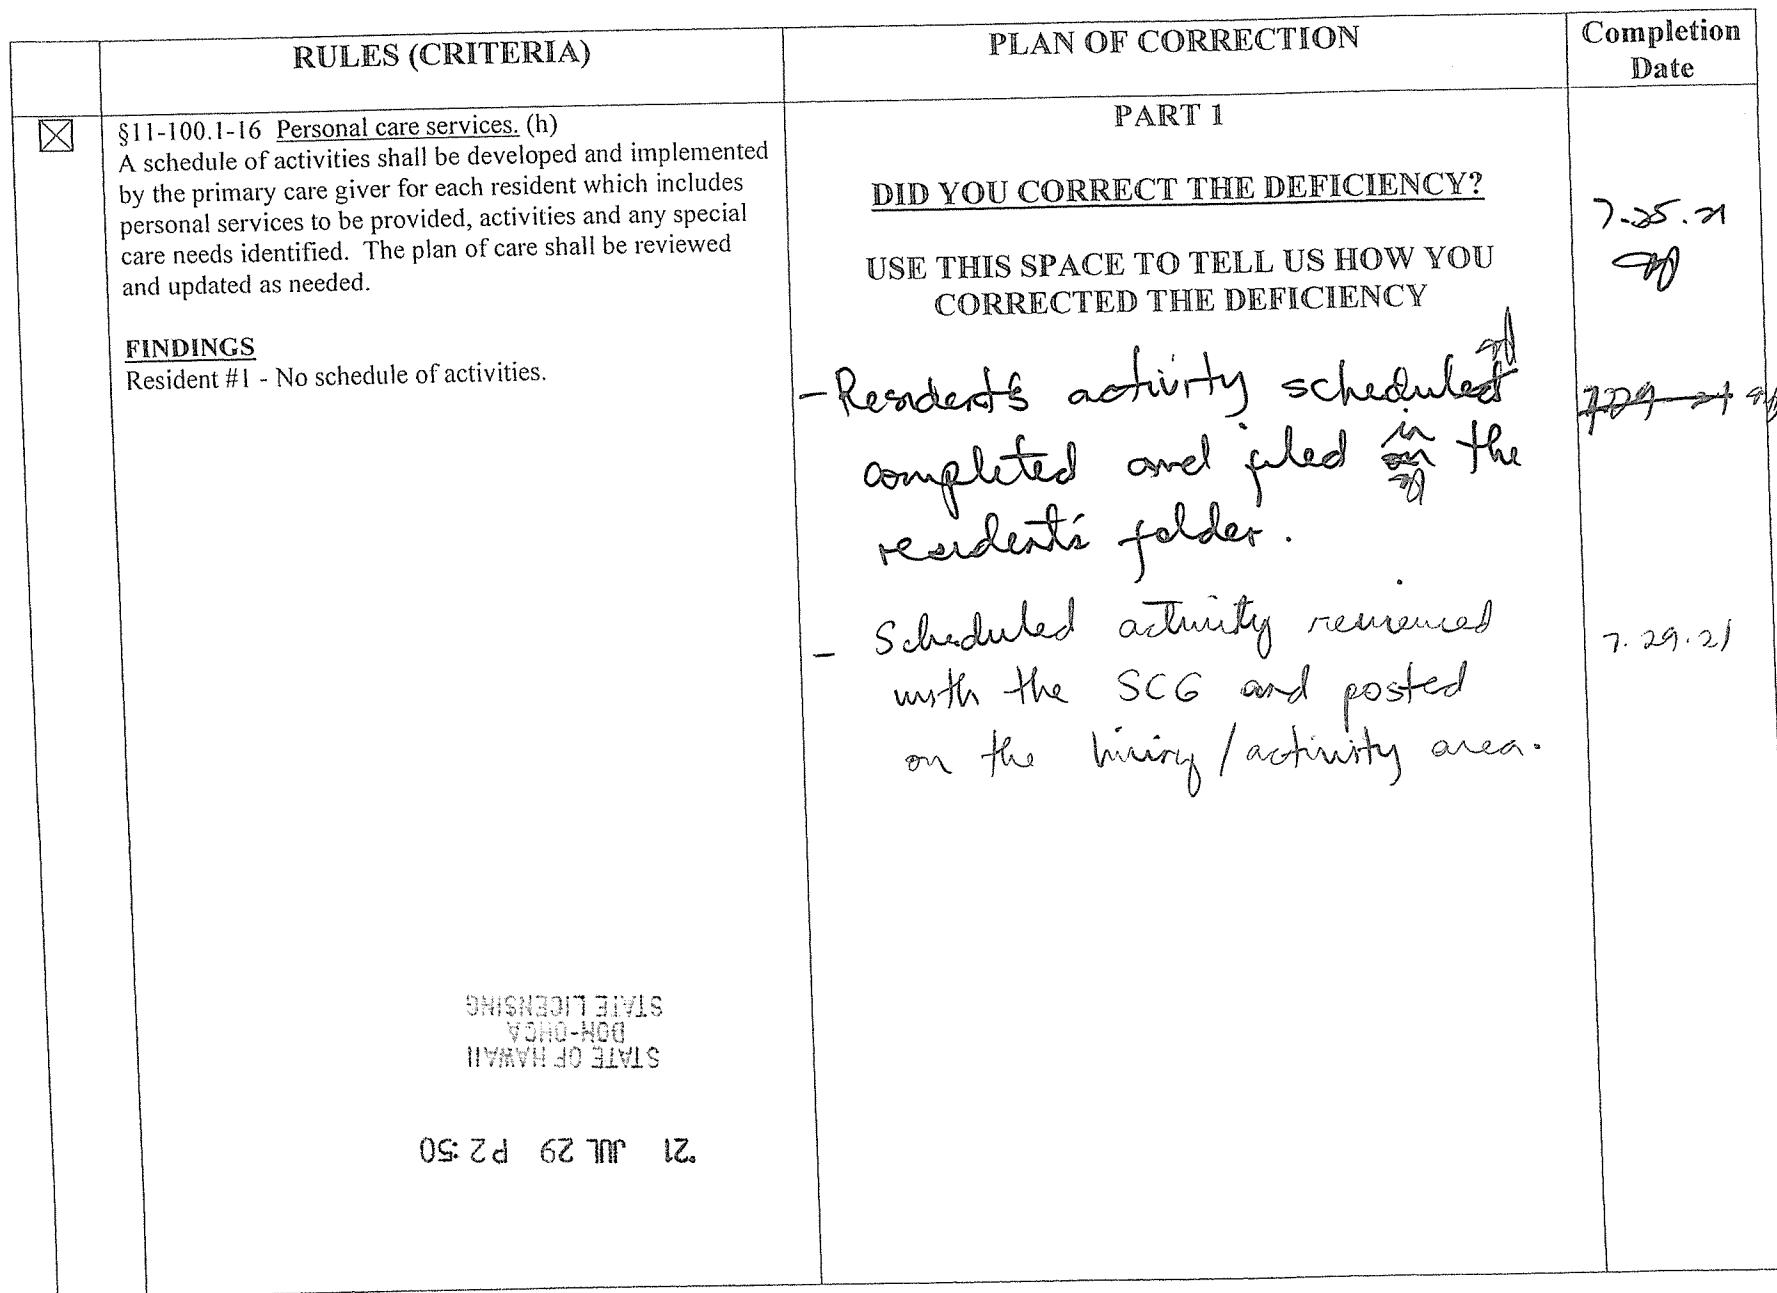 RULES (CRITERIA)
PLAN OF CORRECTION
Completion
Date
§11-100.1-16 Personal care services. (h)
A schedule of activities shall be developed and implemented
by the primary care giver for each resident which includes
personal services to be provided, activities and any special
care needs identified. The plan of care shall be reviewed
and updated as needed.
FINDINGS
Resident #1 - No schedule of activities.
PART 1
DID YOU CORRECT THE DEFICIENCY?
USE THIS SPACE TO TELL US HOW YOU
CORRECTED THE DEFICIENCY
- Resident's activity scheduled
completed and filed in the
resident's folder.
- Scheduled activity reviewed
with the SCG and posted
on the living / activity area.
7.25.21
7.29.21
STATE OF HAWAII
DOH-OHCA
STATE LICENSING
'21 JUL 29 P2:50